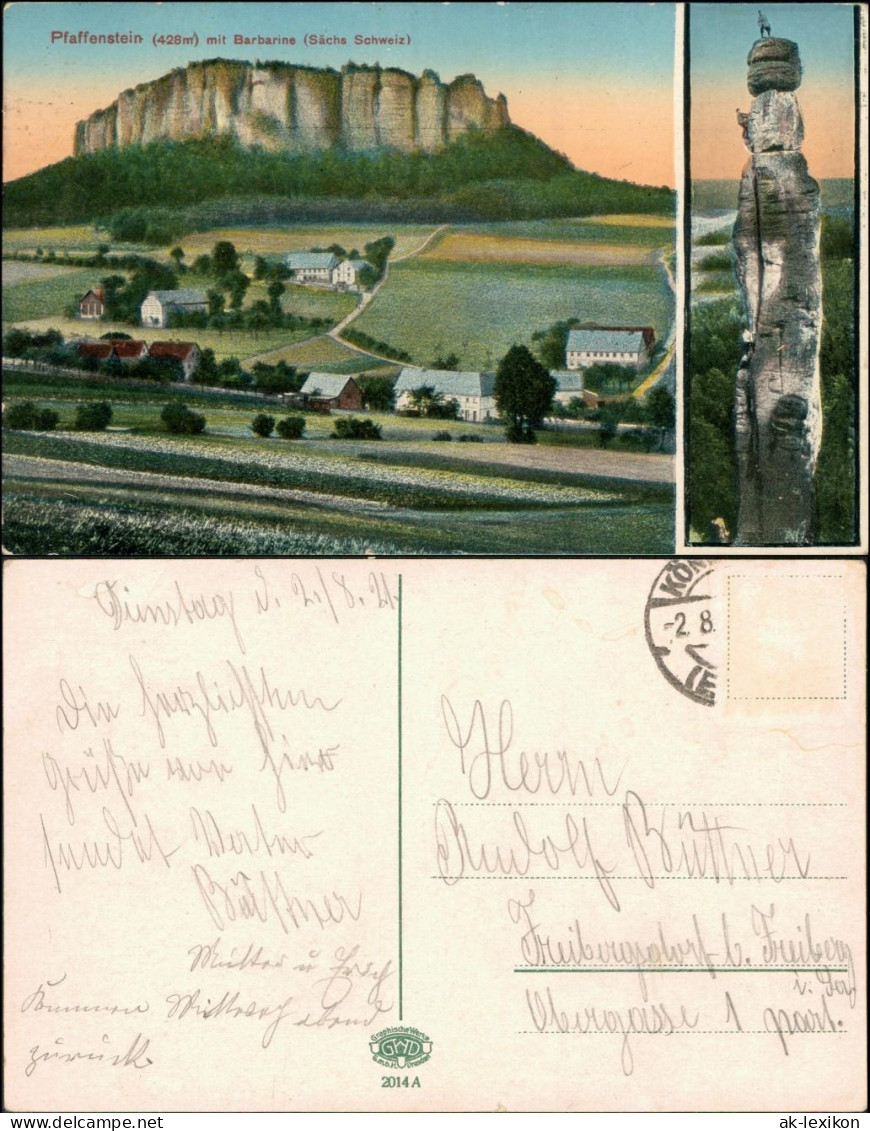 Pfaffenstein (428m) mit Barbarine (Sächs Schweiz)
Dienstag d. 2./8. 21.
Die herzlichsten
Grüße von hier
sendet Vater
Büttner
Mutter u
Kommen Mittwoch abend
zurück.
KÖN
-2.8.
Herrn
Rudolf Büttner
Freibergsdorf b. Freiberg
Obergasse 1 part.
Graphische Werke
GWD
G.m.b.H. Dresden
2014 A
ak-lexikon